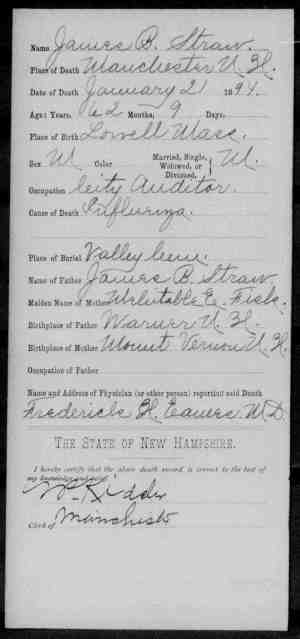 Name James B. Straw.
Place of Death Manchester N. H.
Date of Death January 21 1894.
Age: Years, 62 Months, 9 Days,
Place of Birth Lowell Mass.
Sex M Color Married, Single, Widowed, or Divorced, M.
Occupation City Auditor.
Cause of Death Influenza.
Place of Burial Valley Cem.
Name of Father James B. Straw
Maiden Name of Mother Mehitable E. Fisk.
Birthplace of Father Warner N. H.
Birthplace of Mother Mount Vernon N. H.
Occupation of Father
Name and Address of Physician (or other person) reporting said Death
Frederick H. Eames M.D.
THE STATE OF NEW HAMPSHIRE.
I hereby certify that the above death record is correct to the best of
my knowledge and belief.
Kidder
Clerk of Manchester